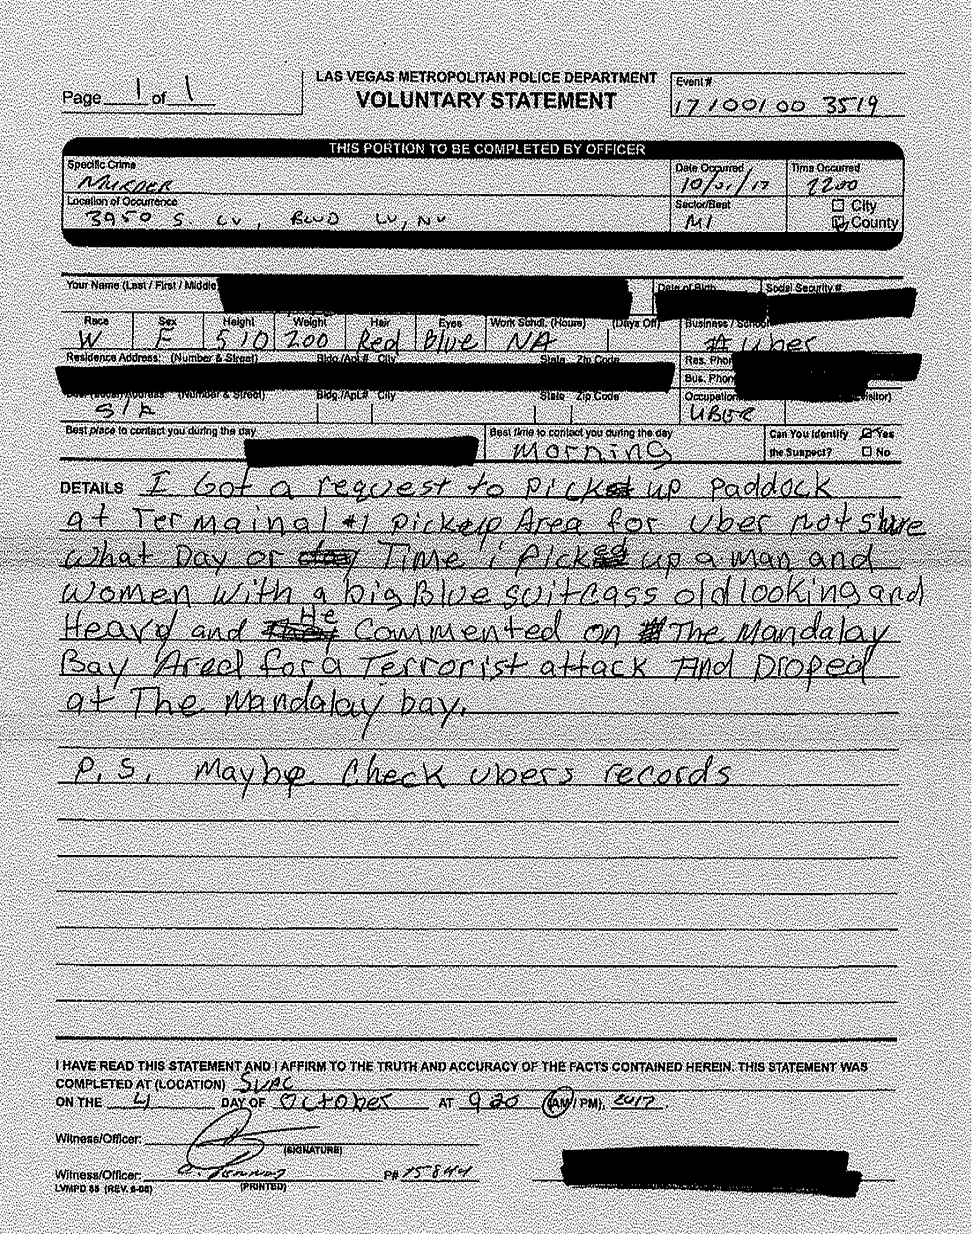 Page 1 of 1
LAS VEGAS METROPOLITAN POLICE DEPARTMENT
VOLUNTARY STATEMENT
Event #
171001003519
THIS PORTION TO BE COMPLETED BY OFFICER
Specific Crime
MURDER
Date Occurred
10/01/17
Time Occurred
2200
Location of Occurrence
3950 S. LV, BLVD LV, NV
Sector/Beat
M1
City
County
Your Name (Last / First / Middle
Date of Birth
Social Security #
Race
W
Sex
F
Height
510
Weight
200
Hair
Red
Eyes
Blue
Work Schdl. (Hours) (Days Off)
NA
Business / School
Uber
Residence Address: (Number & Street) Bldg./Apt.# City State Zip Code
Res. Phon
Bus. Phon
Address: (Number & Street) Bldg./Apt.# City State Zip Code
S/A
Occupation
UBER
Best place to contact you during the day
Best time to contact you during the day
Morning
Can You Identify the Suspect?
Yes
No
DETAILS I Got a request to pick up Paddock
at Termainal #1 pickup Area for Uber not shure
what Day or Time i Pick up a man and
women with a big Blue suitcass old looking and
Heavy and He Commented on The Mandalay
Bay Area for a Terrorist attack And Droped
at The Mandalay bay.
P.S. Maybe Check Ubers records
I HAVE READ THIS STATEMENT AND I AFFIRM TO THE TRUTH AND ACCURACY OF THE FACTS CONTAINED HEREIN. THIS STATEMENT WAS
COMPLETED AT (LOCATION) SVAC
ON THE 4 DAY OF October AT 920 (AM / PM), 2017.
Witness/Officer:
(SIGNATURE)
Witness/Officer:
(PRINTED)
P# 15844
LVMPD 85 (REV. 6-06)